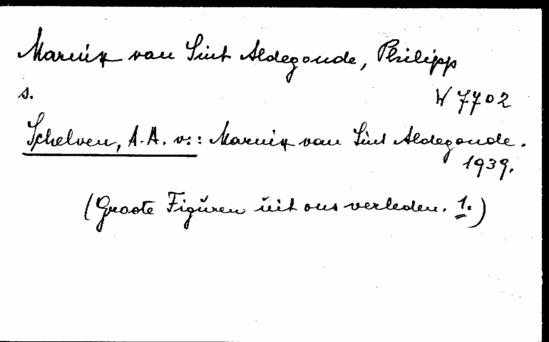 Marnix van Sint Aldegonde, Philipp
s.
W 7702
Schelven, A. A. v.: Marnix van Sint Aldegonde.
1939.
(Groote Figūren ūit ons verleden. 1.)